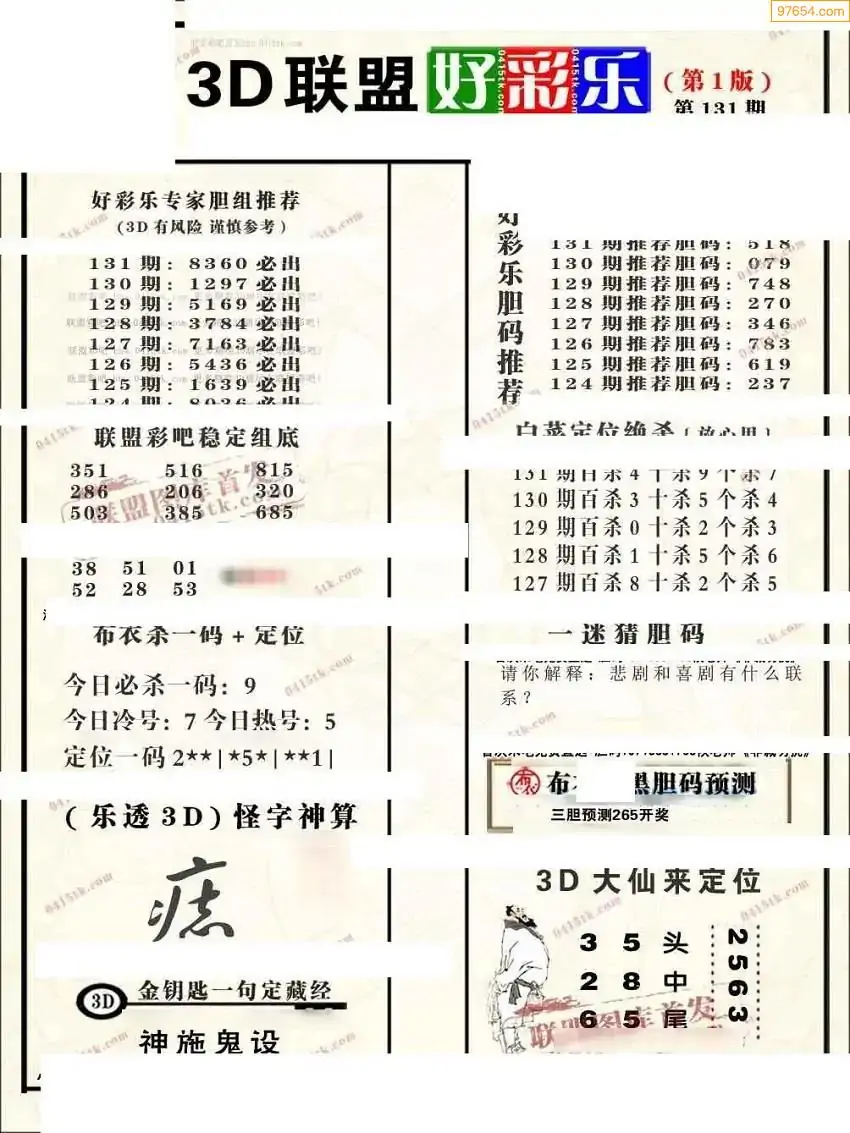 97654.com
3D联盟好彩乐
(第1版)
第131期
好彩乐专家胆组推荐
(3D有风险 谨慎参考)
131期: 8360必出
130期: 1297必出
129期: 5169必出
128期: 3784必出
127期: 7163必出
126期: 5436必出
125期: 1639必出
124期: 8036必出
联盟彩吧稳定组底
351 516 815
286 206 320
503 385 685
38 51 01
52 28 53
布衣杀一码+定位
今日必杀一码: 9
今日冷号: 7 今日热号: 5
定位一码 2**|*5*|**1|
(乐透3D)怪字神算
痣
3D 金钥匙一句定藏经
神施鬼设
好彩乐胆码推荐
131期推荐胆码: 518
130期推荐胆码: 079
129期推荐胆码: 748
128期推荐胆码: 270
127期推荐胆码: 346
126期推荐胆码: 783
125期推荐胆码: 619
124期推荐胆码: 237
白菜定位绝杀(放心用)
131期百杀4十杀9个杀7
130期百杀3十杀5个杀4
129期百杀0十杀2个杀3
128期百杀1十杀5个杀6
127期百杀8十杀2个杀5
一迷猜胆码
请你解释: 悲剧和喜剧有什么联
系?
黑胆码预测
三胆预测265开奖
3D大仙来定位
3 5 头
2 8 中
6 5 尾
2563
联盟图库首发
0415tk.com